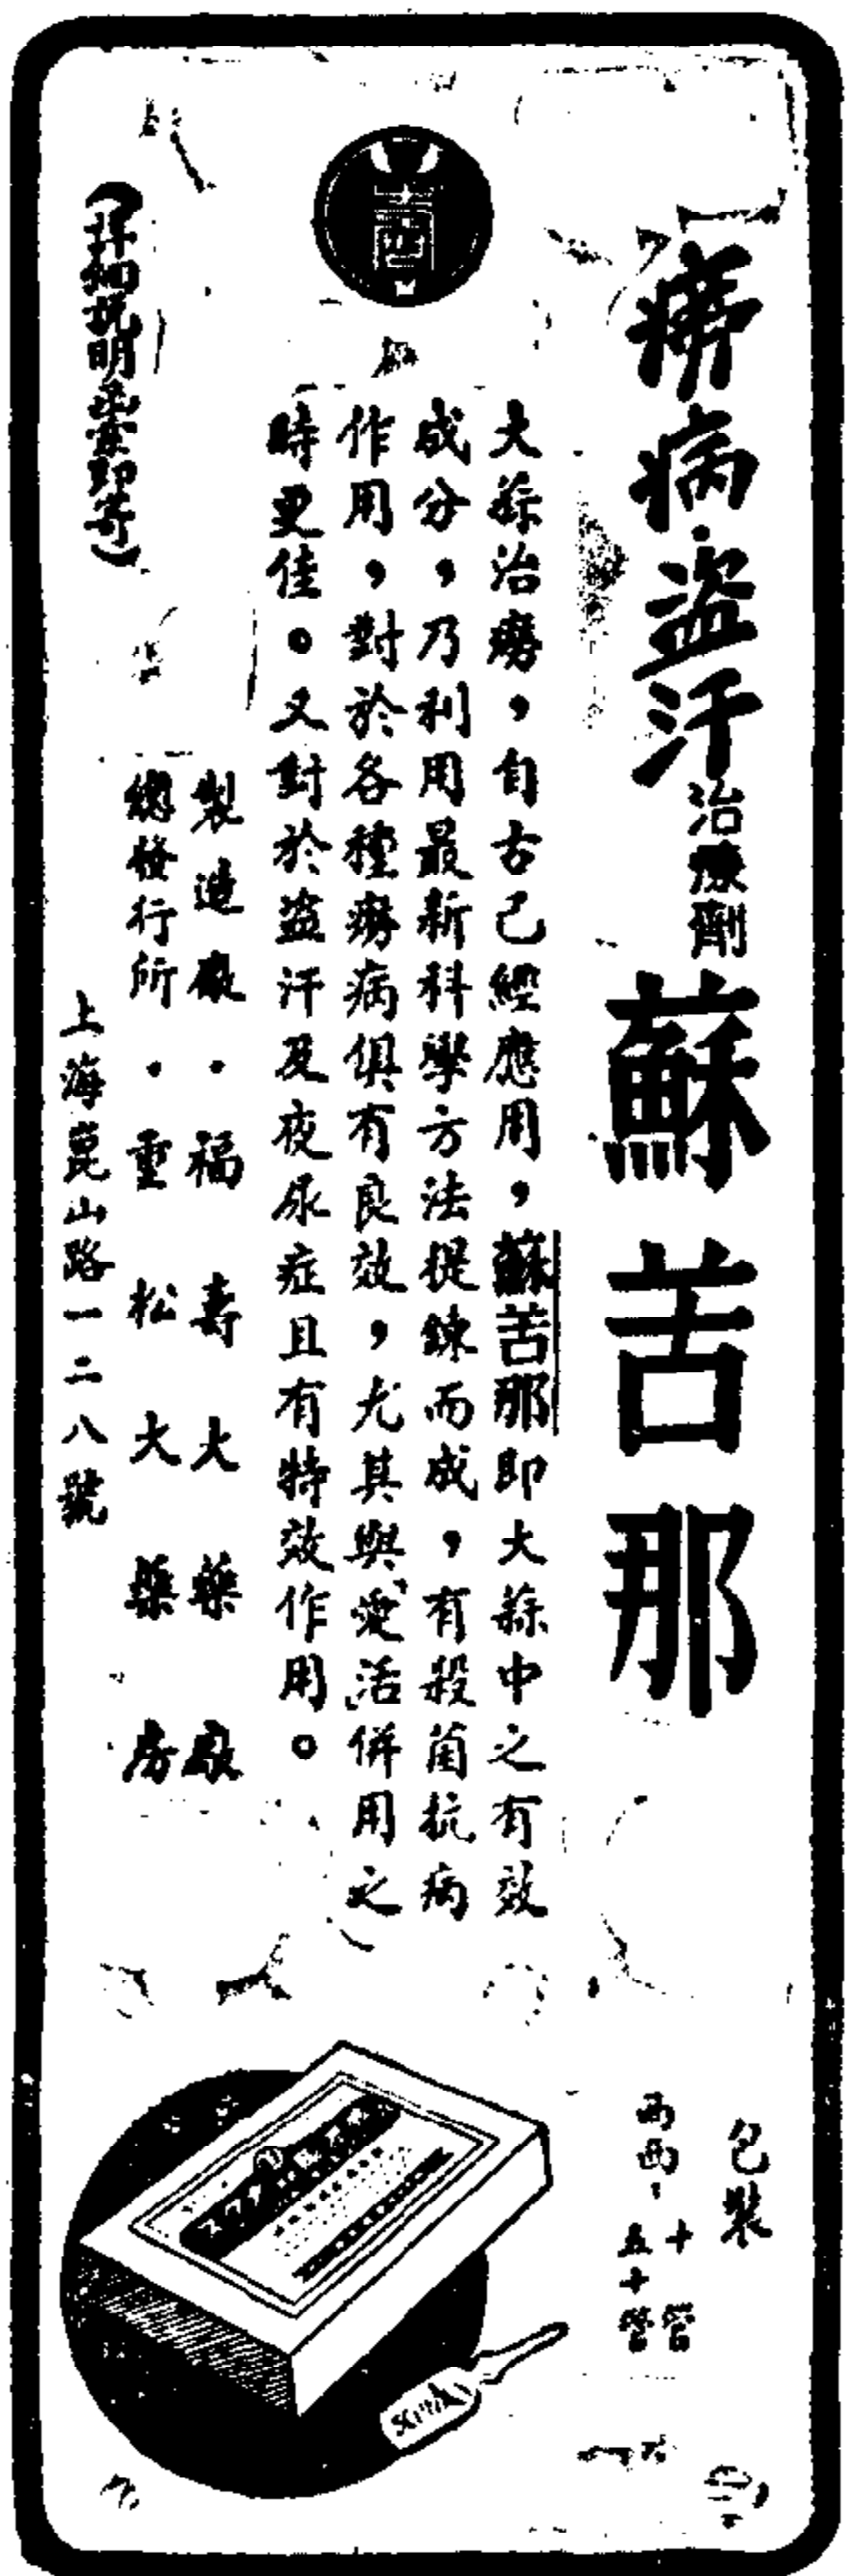 癆病・盜汗治療劑
蘇苦那
大蒜治癆，自古已經應用，蘇苦那即大蒜中之有效
成分，乃利用最新科學方法提鍊而成，有殺菌抗病
作用，對於各種癆病俱有良效，尤其與愛活併用之
時更佳。又對於盜汗及夜尿症且有特效作用。
製造廠・福壽大藥廠
總發行所・重松大藥房
上海崑山路一二八號
（詳細說明函索即寄）
包裝
十管
五十管